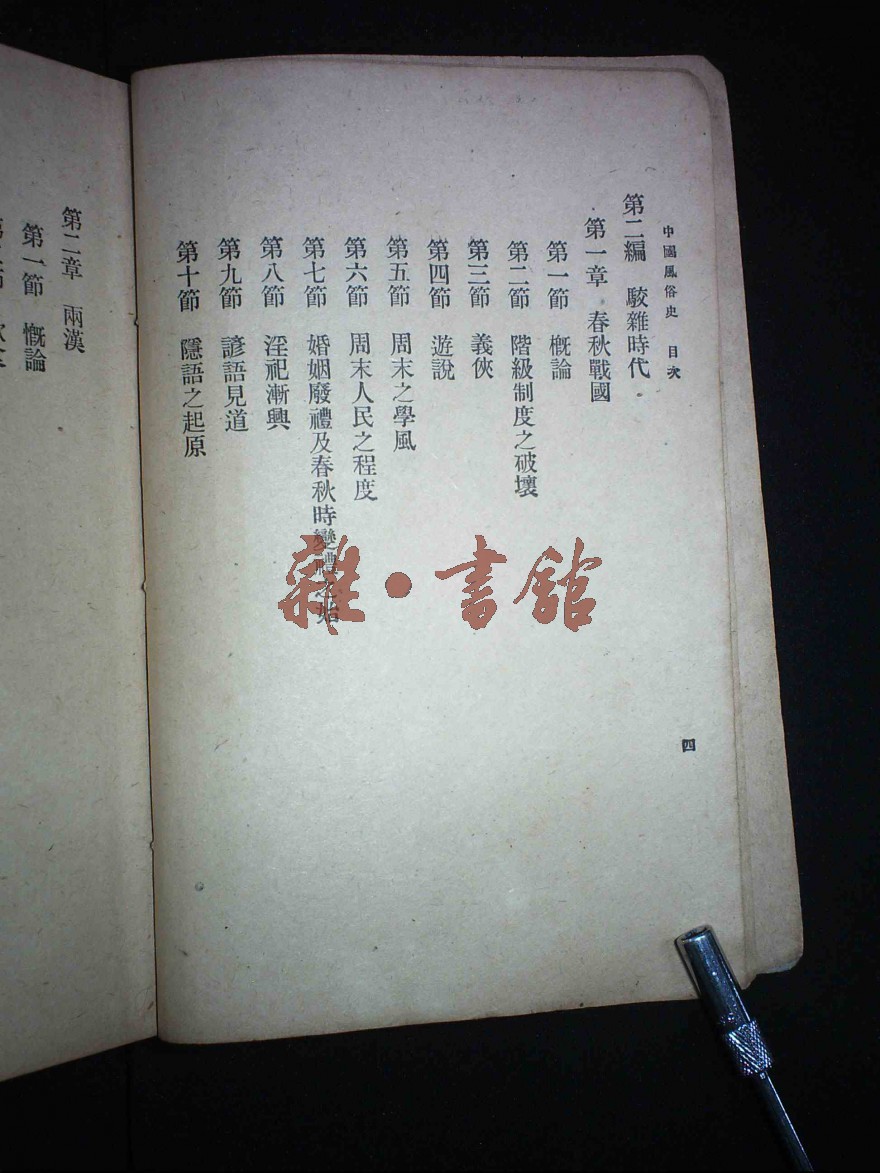 中國風俗史 目次
第二編 駁雜時代
第一章 春秋戰國
第一節 概論
第二節 階級制度之破壞
第三節 義俠
第四節 遊說
第五節 周末之學風
第六節 周末人民之程度
第七節 婚姻廢禮及春秋時變禮之始
第八節 淫祀漸興
第九節 諺語見道
第十節 隱語之起原
四
第二章 兩漢
第一節 概論
雜·書館